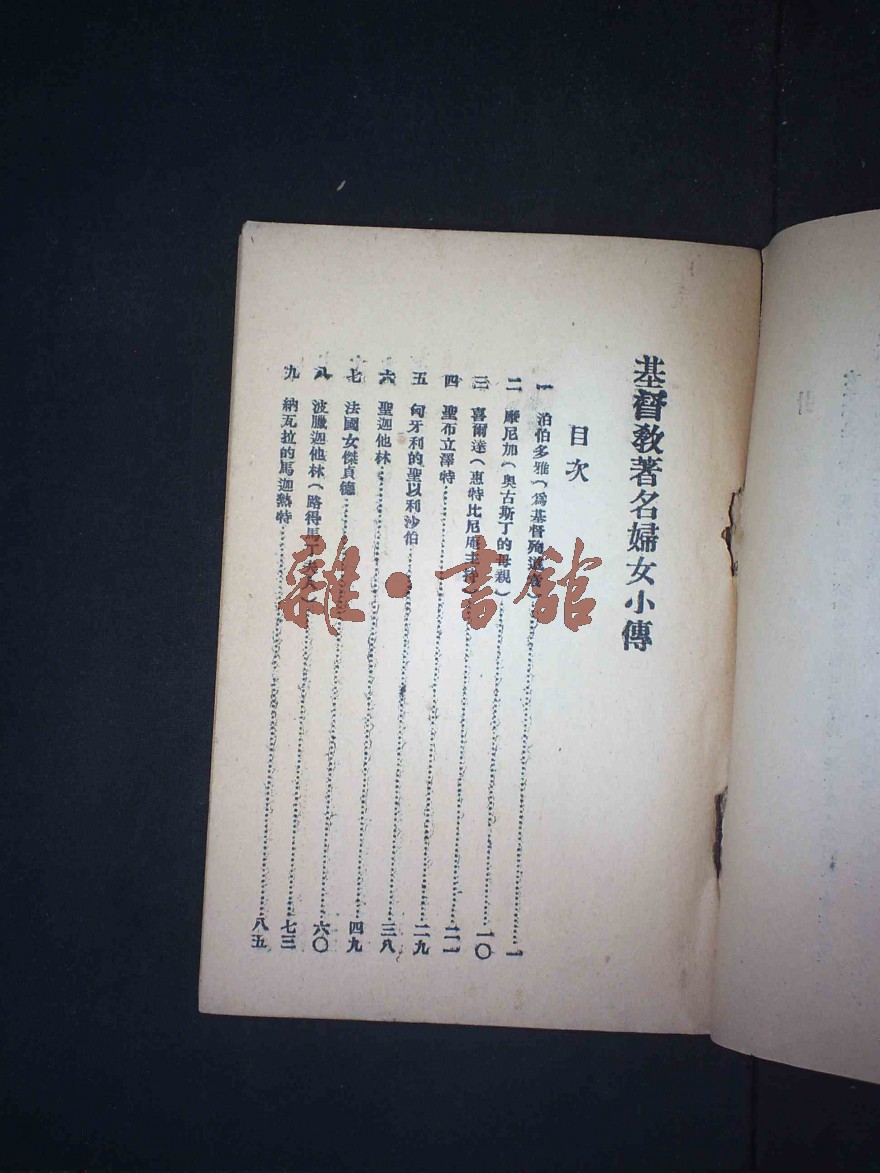 基督教著名婦女小傳
目次
一 泊伯多雅(爲基督殉道者)……一
二 摩尼加(奧古斯丁的母親)……一〇
三 喜爾達(惠特比尼庵主持)……二一
四 聖布立澤特……二九
五 匈牙利的聖以利沙伯……三八
六 聖迦他林……四九
七 法國女傑貞德……六〇
八 波臘迦他林(路得馬丁夫人)……七三
九 納瓦拉的馬迦熱特……八五
雜·書館